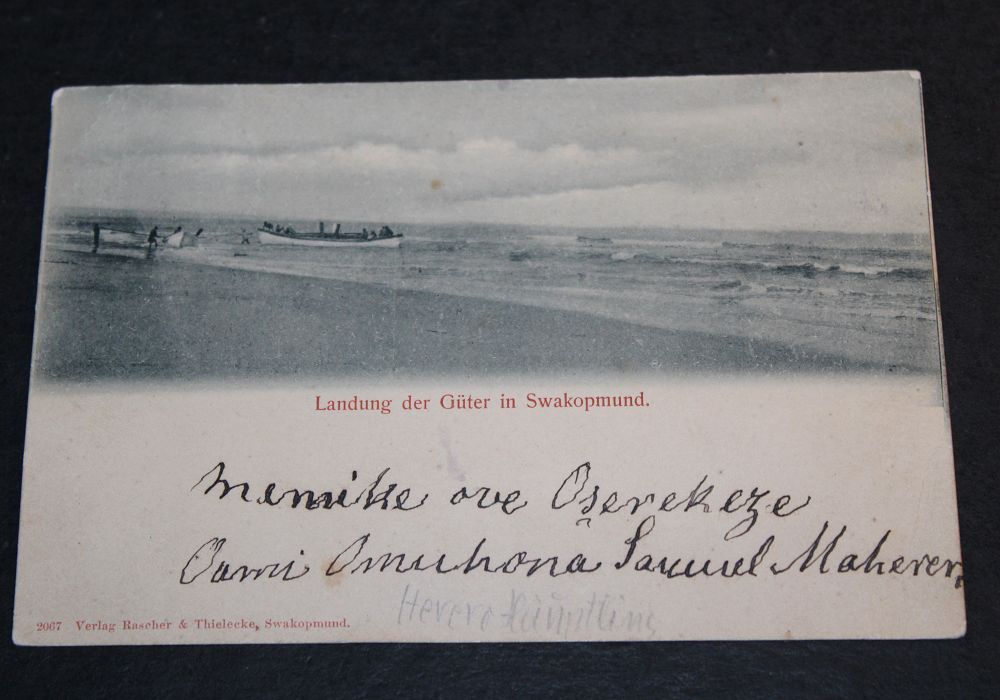 Landung der Güter in Swakopmund.
Memike ove Oserekeze
Oami Omuhona Samuel Maherero
Herero Häuptling
2067 Verlag Rascher & Thielecke, Swakopmund.